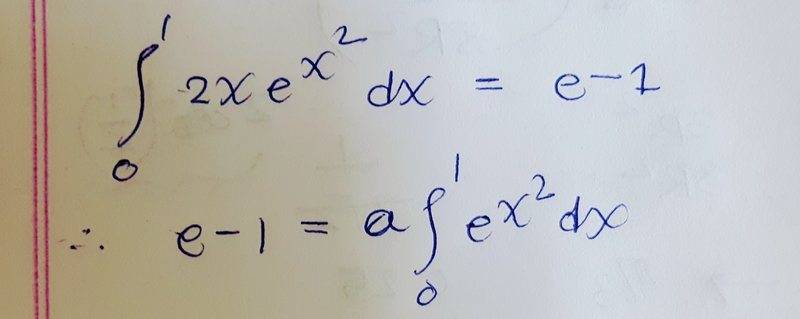 ∫₀¹ 2x e^{x²} dx = e-1
∴ e-1 = a ∫₀¹ e^{x²} dx